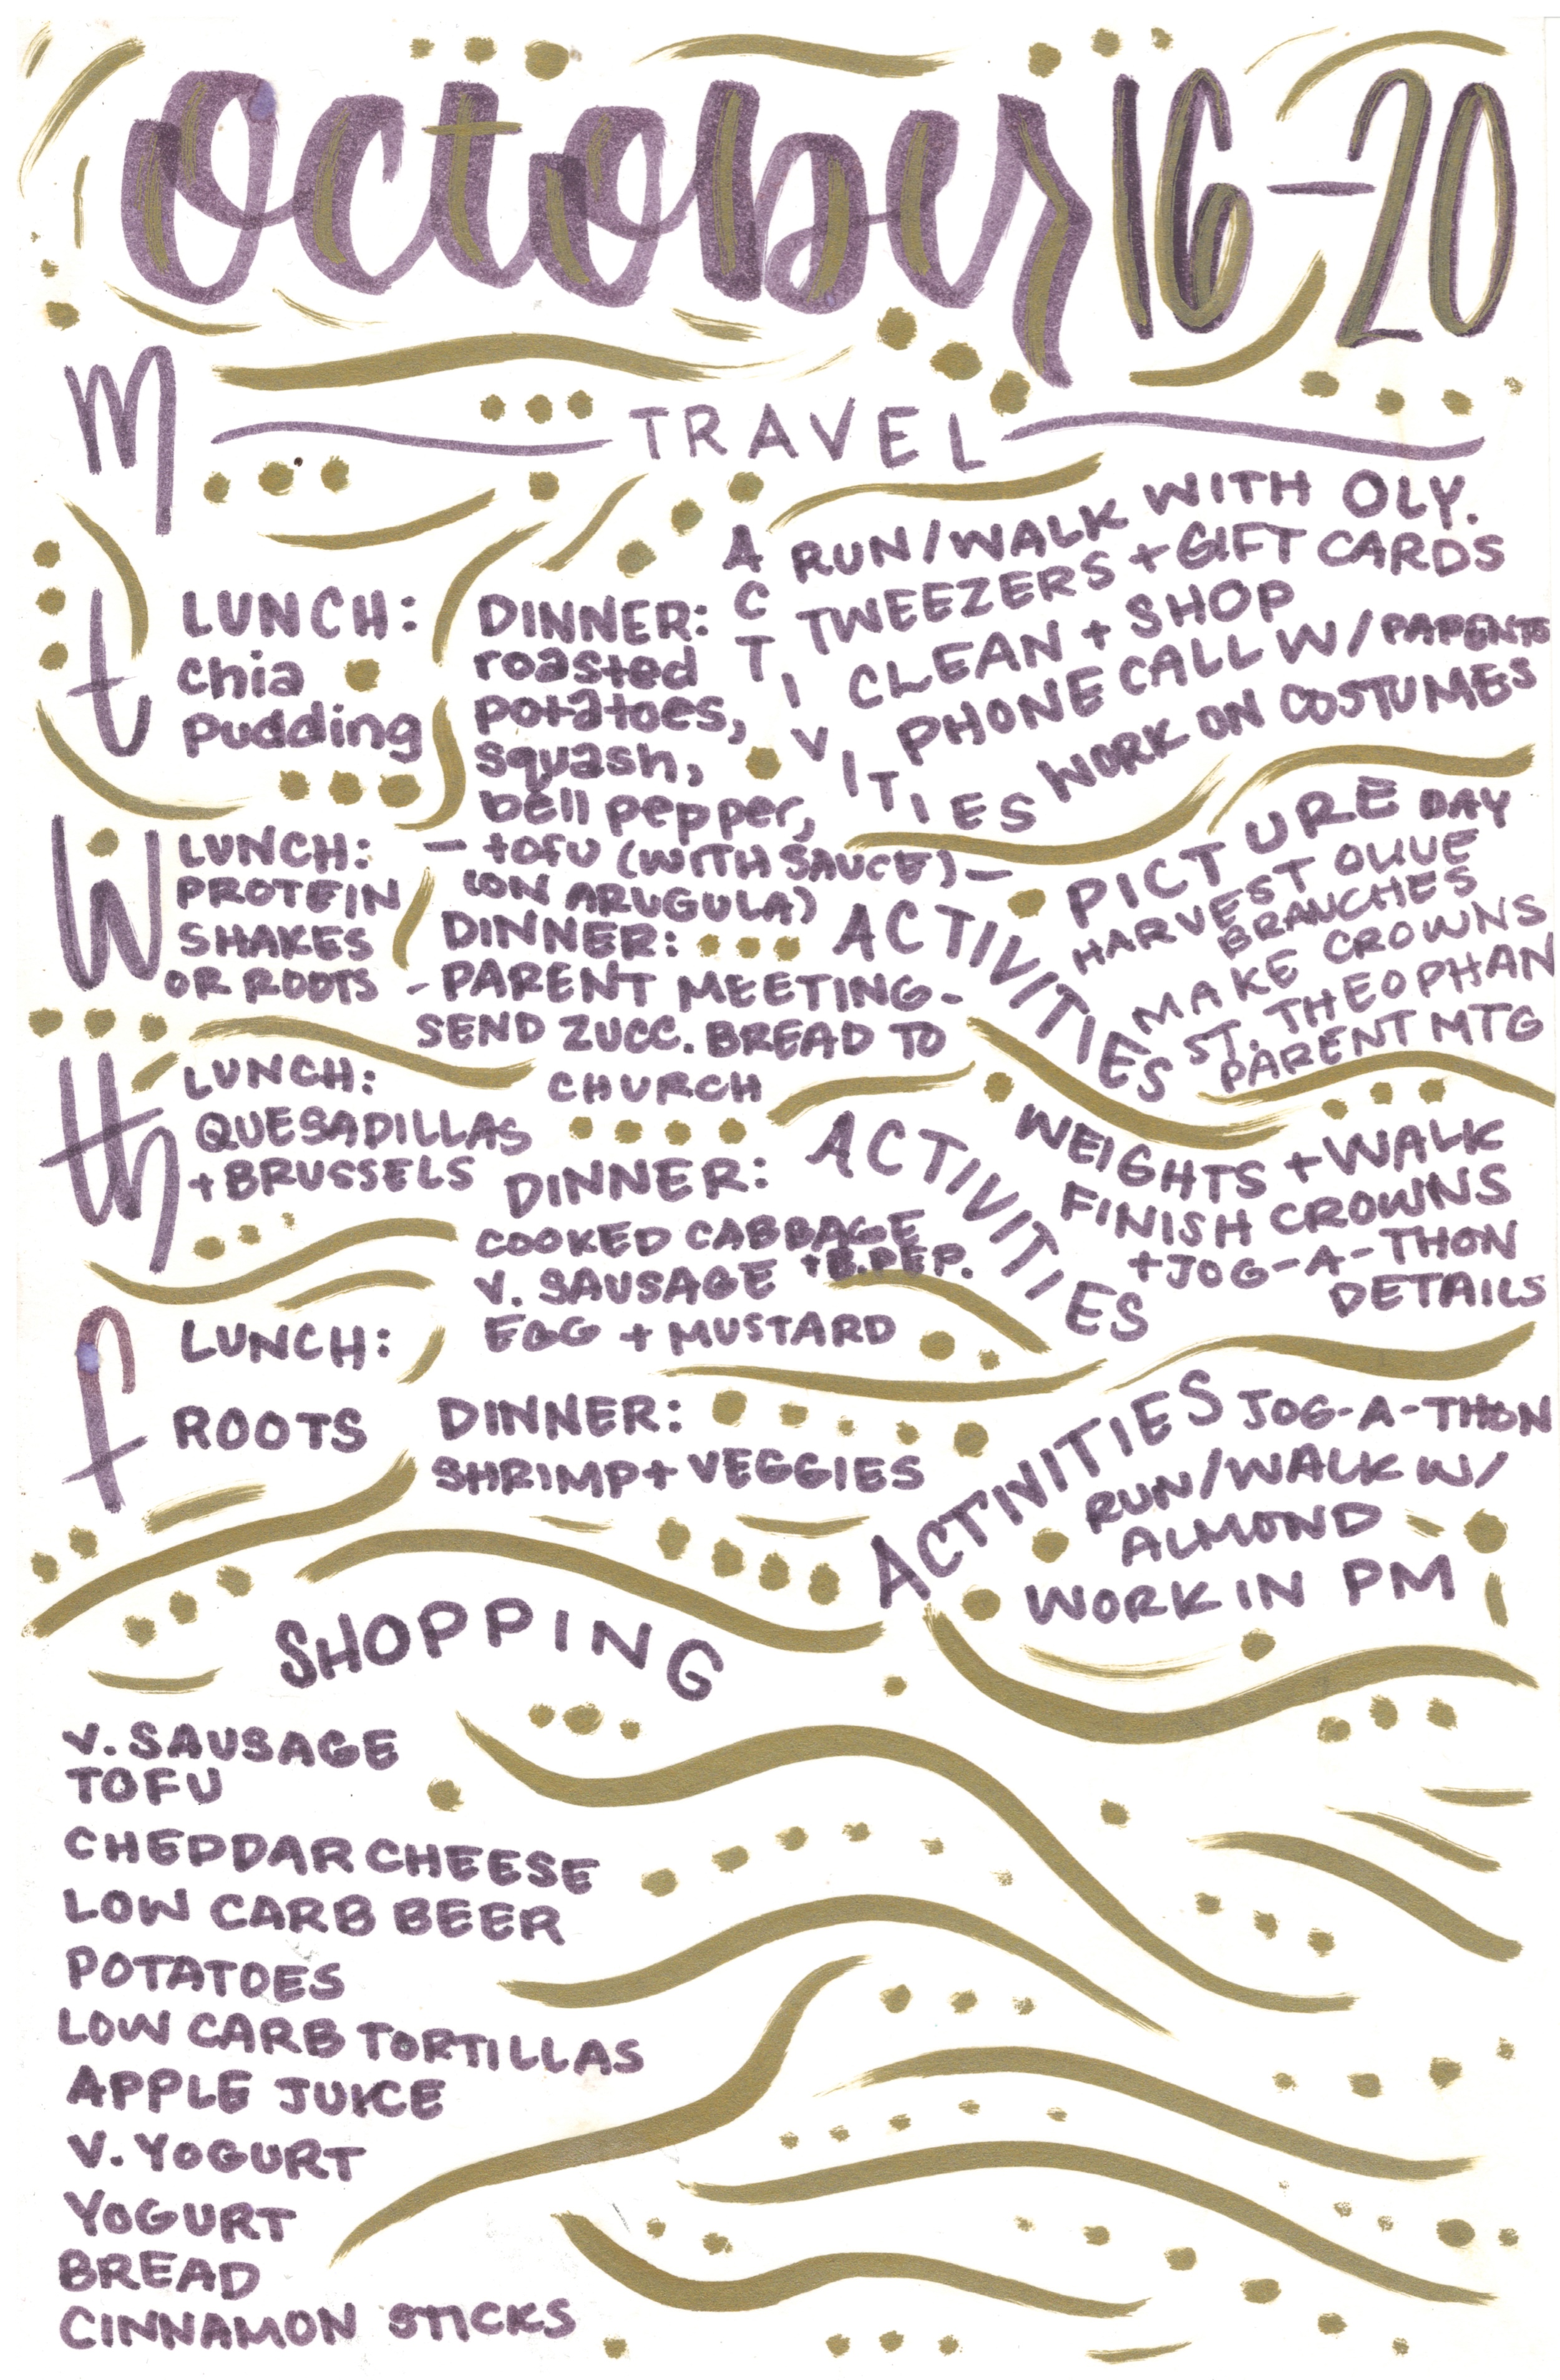 october 16-20
M TRAVEL
t
LUNCH:
chia
pudding
DINNER:
roasted
potatoes,
squash,
bell pepper,
- tofu (WITH SAUCE) -
(ON ARUGULA)
ACTIVITIES
RUN/WALK WITH OLY.
TWEEZERS + GIFT CARDS
CLEAN + SHOP
PHONE CALL W/ PARENTS
WORK ON COSTUMES
W
LUNCH:
PROTEIN
SHAKES
OR ROOTS
DINNER:
- PARENT MEETING -
SEND ZUCC. BREAD TO
CHURCH
ACTIVITIES
PICTURE DAY
HARVEST OLIVE
BRANCHES
MAKE CROWNS
ST. THEOPHAN
PARENT MTG
th
LUNCH:
QUESADILLAS
+ BRUSSELS
DINNER:
COOKED CABBAGE
+ B. PEP.
V. SAUSAGE
EGG + MUSTARD
ACTIVITIES
WEIGHTS + WALK
FINISH CROWNS
+ JOG-A-THON
DETAILS
f
LUNCH:
ROOTS
DINNER:
SHRIMP + VEGGIES
ACTIVITIES
JOG-A-THON
RUN/WALK W/
ALMOND
WORK IN PM
SHOPPING
V. SAUSAGE
TOFU
CHEDDAR CHEESE
LOW CARB BEER
POTATOES
LOW CARB TORTILLAS
APPLE JUICE
V. YOGURT
YOGURT
BREAD
CINNAMON STICKS